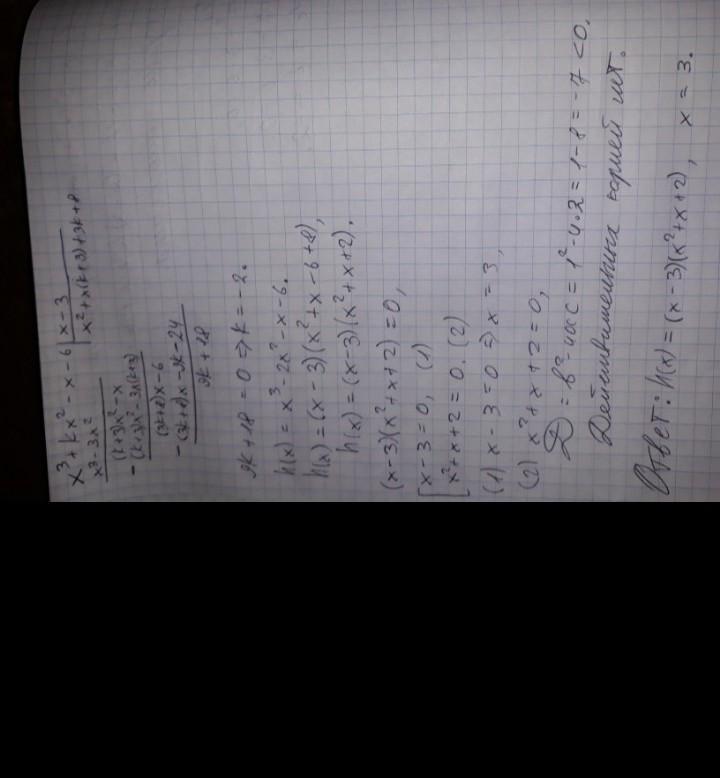 x³ + kx² - x - 6 | x - 3
x³ - 3x² | x² + x(k+3) + 3k + 8
(k+3)x² - x
- (k+3)x² - 3x(k+3)
(3k+8)x - 6
- (3k+8)x - 9k - 24
9k + 18
9k + 18 = 0 ⇒ k = -2.
h(x) = x³ - 2x² - x - 6.
h(x) = (x - 3)(x² + x - 6 + 8),
h(x) = (x - 3)(x² + x + 2).
(x - 3)(x² + x + 2) = 0,
[ x - 3 = 0, (1)
x² + x + 2 = 0. (2)
(1) x - 3 = 0 ⇒ x = 3,
(2) x² + x + 2 = 0,
D = b² - 4ac = 1² - 4·2 = 1 - 8 = -7 < 0,
Действительных корней нет.
Ответ: h(x) = (x - 3)(x² + x + 2), x = 3.